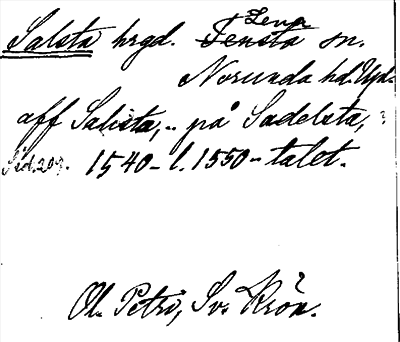 Salsta hrgd. Tensta sn. Lena
Norunda hd. Upl.
aff Salista, .. på Sadelsta, ?
Sid. 209. 1540- l. 1550-talet.
Ol. Petri, Sv. Krön.